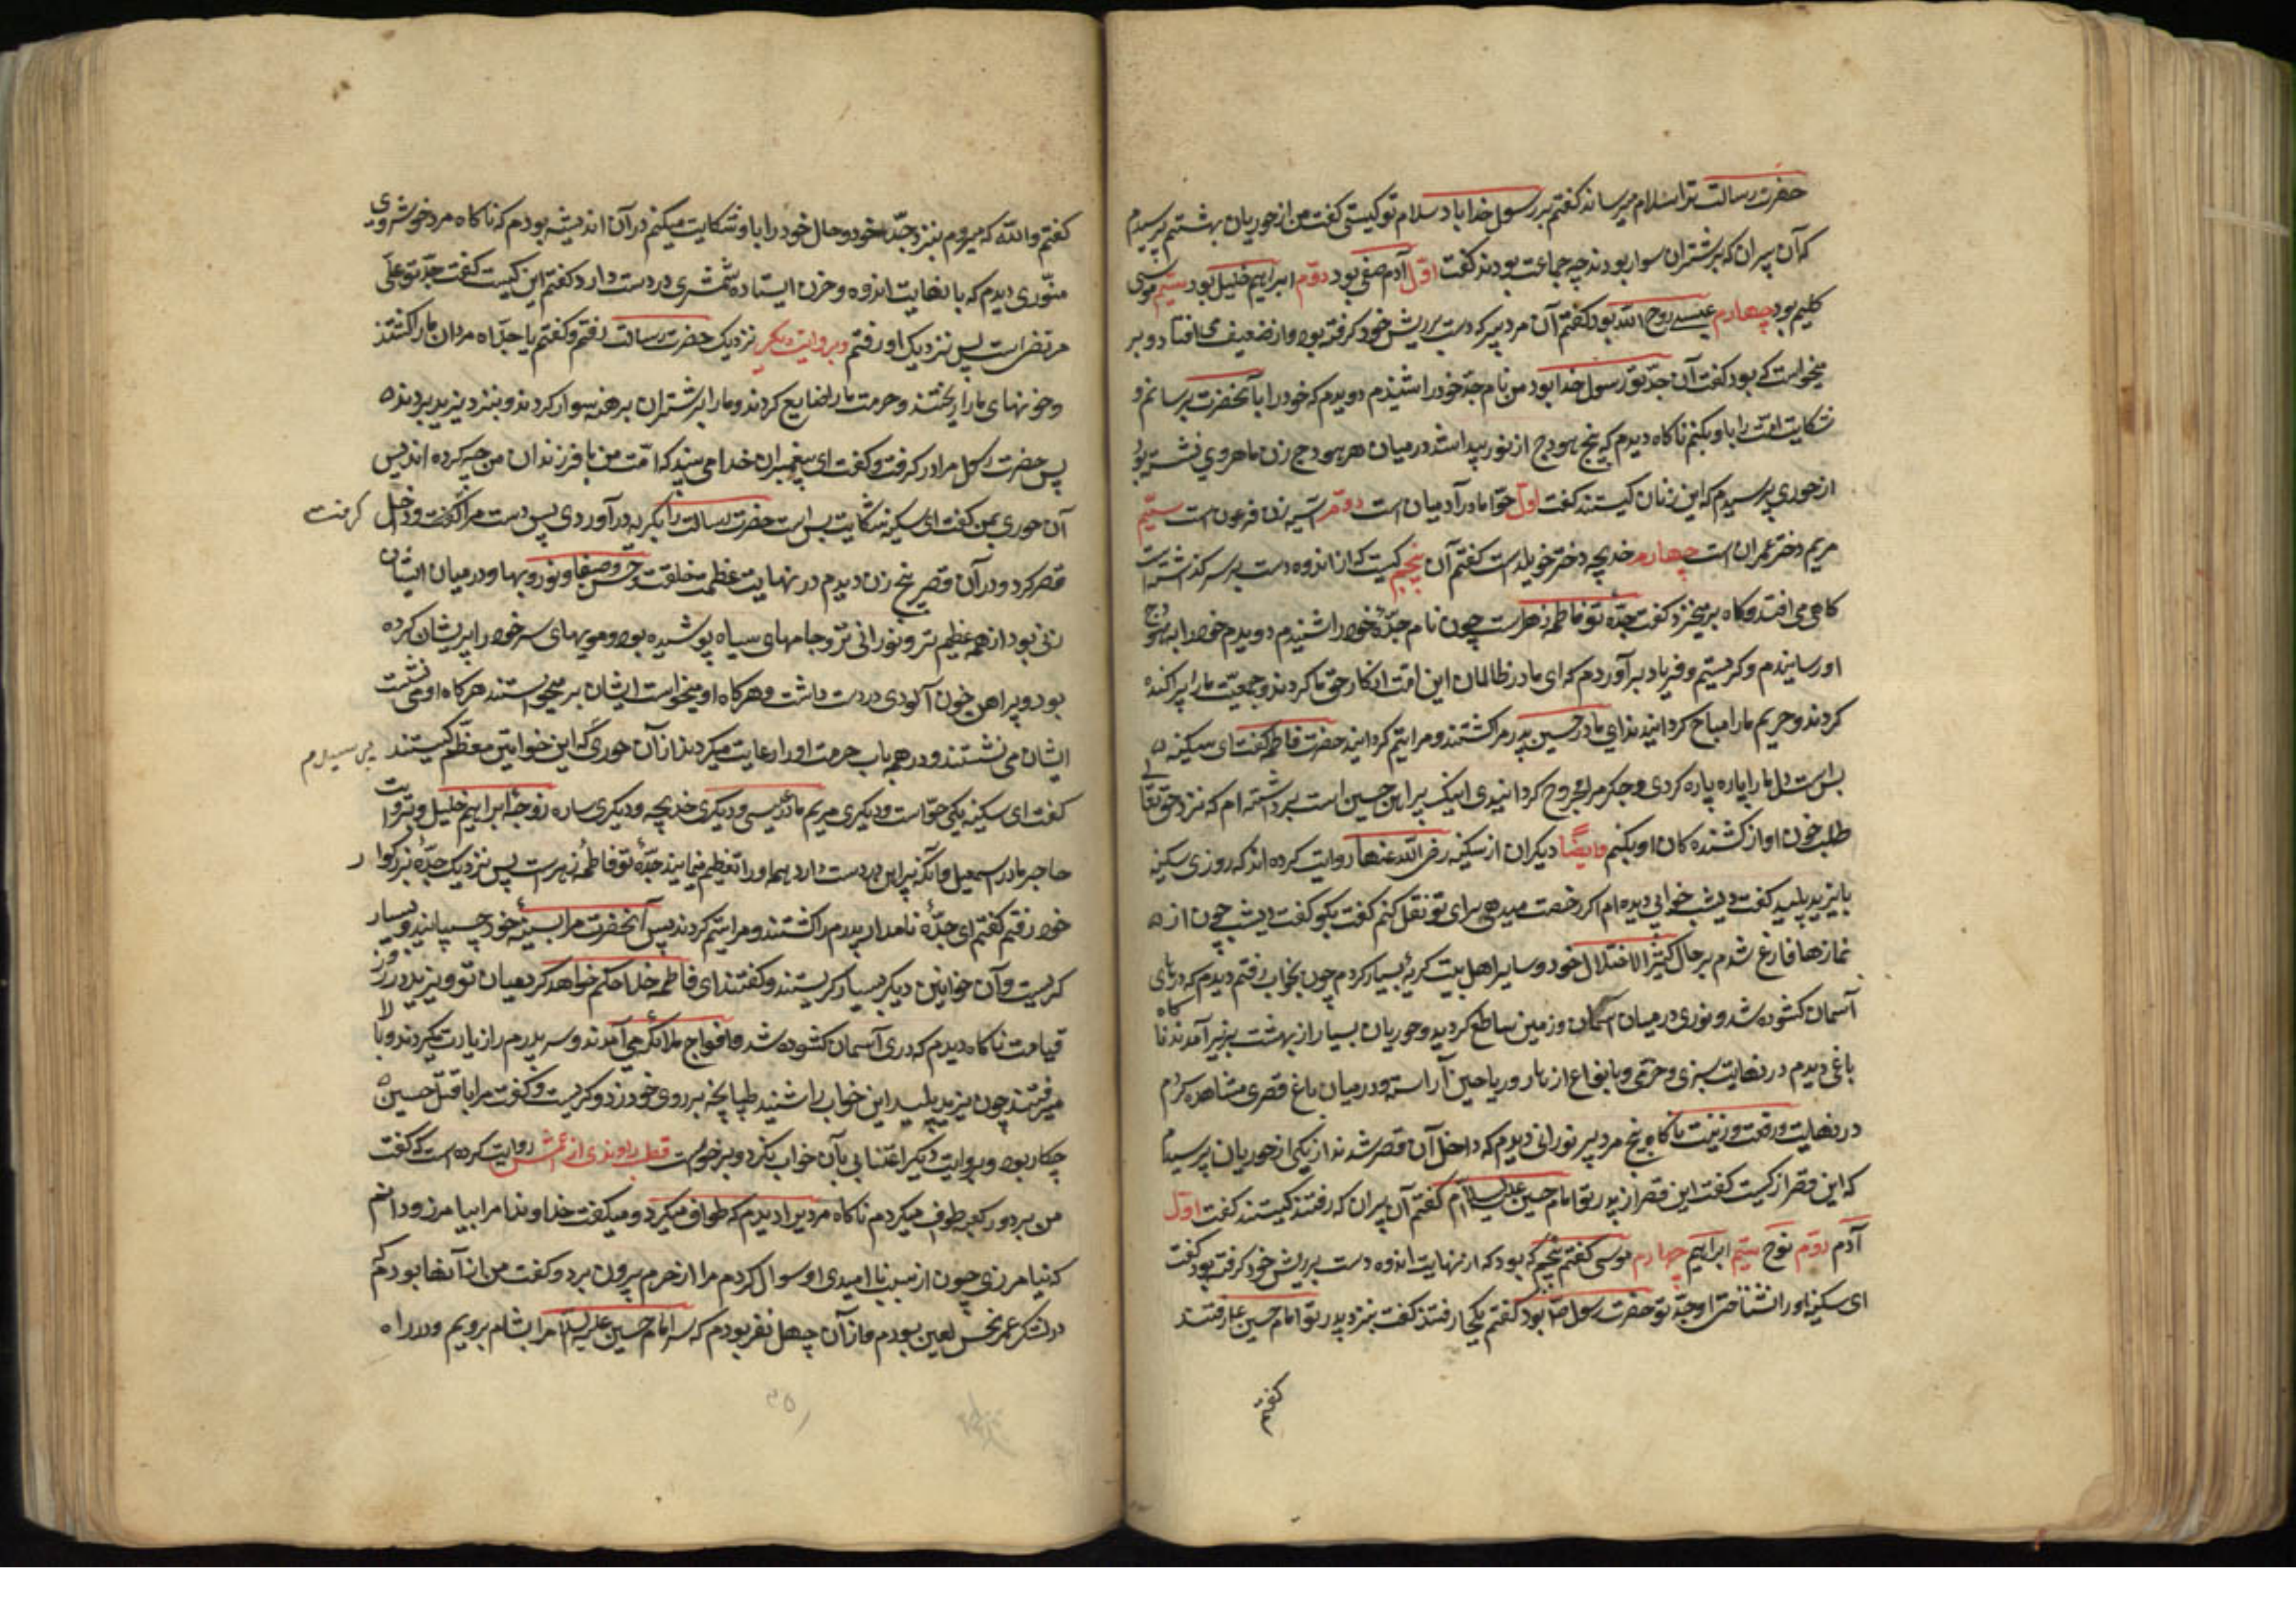 حضرت رسالت ترا سلام میرساند کفتم بر رسول خدا باد سلام تو کیستی کفت من از حوریان بهشتم پرسیدم
که آن پیران که بر شتران سوار بودند چه جماعت بودند کفت اوّل آدم صفی بود دوّم ابراهیم خلیل بود سیّم موسی
کلیم بود چهارم عیسی روح الله بود کفتم آن مرد پیر که دست بر ریش خود کرفته بود و از ضعیفی می افتاد و بر
میخواست که بود کفت آن جدّ تو رسول خدا بود من نام جدّ خود را شنیدم دویدم که خود را بآنحضرت برسانم و
شکایت امّت را باو بکنم ناکاه دیدم که پنج هودج از نور پیدا شد در میان هر هودج زن ماهروی نشسته بود
از حوری پرسیدم که این زنان کیستند کفت اوّل حوّا مادر آدمیان است دوّم آسیه زن فرعون است سیّم
مریم دختر عمران است چهارم خدیجه دختر خویلد است کفتم آن پنجم کیست که از اندوه دست بر سر کذاشته است
کاهی می افتد و کاه بر میخیزد کفت جدّه تو فاطمه زهراست چون نام جدّهٔ خود را شنیدم دویدم خود را به هودج
او رسانیدم و کریستم و فریاد بر آوردم که ای مادر ظالمان این امّت انکار حق ما کردند و جمعیّت ما را پراکنده
کردند و حریم ما را مباح کردانیدند ای مادر حسین پدرم را کشتند و مرا یتیم کردانیدند حضرت فاطمه کفت ای سکینه
بس است دل ما را پاره پاره کردی و جکر مرا مجروح کردانیدی اینک پیراهن حسین است برداشته ام که نزد حقتعالی
طلب خون او از کشنده کان او بکنم و ایضاً دیکران از سکینه رضی الله عنها روایت کرده اند که روزی سکینه
با یزید پلید کفت دیشب خوابی دیده ام اکر رخصت میدهی برای تو نقل کنم کفت بکو کفت دیشب چون از
نمازها فارغ شدم بر حال کثیر الاختلال خود و سایر اهل بیت کریهٔ بسیار کردم چون بخواب رفتم دیدم که درهای
آسمان کشوده شد و نوری در میان آسمان و زمین ساطع کردید و حوریان بسیار از بهشت بزیر آمدند ناکاه
باغی دیدم در نهایت سبزی و خرّمی و بانواع ازهار و ریاحین آراسته و در میان باغ قصری مشاهده کردم
در نهایت رفعت و زینت ناکاه پنج مرد پیر نورانی دیدم که داخل آن قصر شدند از یکی از حوریان پرسیدم
که این قصر از کیست کفت این قصر از پدر تو امام حسین علیه السلام کفتم آن پیران که رفتند کیستند کفت اوّل
آدم دوّم نوح سیّم ابراهیم چهارم موسی کفتم پنجم که بود که از نهایت اندوه دست بر ریش خود کرفته بود کفت
ای سکینه او را نشناختی او جدّ تو حضرت رسول خدا بود کفتم بکجا رفتند کفت بنزد پدر تو امام حسین ع رفتند
کفتم
کفتم والله که میروم بنزد جدّ خود و حال خود را باو شکایت میکنم در آن اندیشه بودم که ناکاه مرد خوش روی
منوّری دیدم که با نهایت اندوه و حزن ایستاده شمشیری در دست دارد کفتم این کیست کفت جدّ تو علی
مرتضی است پس نزدیک او رفتم و بروایت دیکر نزدیک حضرت رسالت رفتم و کفتم یا جدّاه مردان ما را کشتند
و خونهای ما را ریختند و حرمت ما را ضایع کردند و ما را بر شتران برهنه سوار کردند و بنزد یزید بردند
پس حضرت رسول مرا در بر کرفت و کفت ای پیغمبران خدا می بینید که امّت من با فرزندان من چه کرده اند پس
آن حوری بمن کفت ای سکینه شکایت بس است حضرت رسالت را بکریه در آوردی پس دست مرا کرفت و داخل کرفت
قصر کرد و در آن قصر پنج زن دیدم در نهایت عظمت خلقت و حسن و صفا و نور و بها و در میان ایشان
زنی بود از همه عظیم تر و نورانی تر و جامهای سیاه پوشیده بود و مویهای سر خود را پریشان کرده
بود و پیراهن خون آلودی در دست داشت و هر کاه او میخواست ایشان بر میخواستند هر کاه او می نشست
ایشان می نشستند و در همه باب حرمت او را رعایت میکردند از آن حوری که این خواتین معظّم کیستند پرسیدم
کفت ای سکینه یکی حوّاست و دیکری مریم مادر عیسی و دیکری خدیجه و دیکری ساره زوجهٔ ابراهیم خلیل و بروایت
هاجر مادر اسمعیل و آنکه پیراهن در دست دارد و همه او را تعظیم مینمایند جدّهٔ تو فاطمهٔ زهراست پس نزدیک جدّهٔ بزرکوار
خود رفتم کفتم ای جدّهٔ نامدار پدرم را کشتند و مرا یتیم کردند پس آنحضرت مرا بسینهٔ خود چسپانید و بسیار
کریست و آن خواتین دیکر بسیار کریستند و کفتند ای فاطمه خدا حکم خواهد کرد میان تو و یزید در روز
قیامت ناکاه دیدم که دری آسمان کشوده شد و افواج ملائکه می آمدند و سر پدرم را زیارت میکردند و بالا
میرفتند چون یزید پلید این خواب را شنید طپانچه بر روی خود زد و کریست و کفت مرا با قتل حسین
چکار بود و بروایت دیکر اعتنایی بآن خواب نکرد و برخواست قطب راوندی از اعمش روایت کرده است که کفت
من بر دور کعبه طواف میکردم ناکاه مردیرا دیدم که طواف میکرد و میکفت خداوندا مرا بیامرز و دانم
که نیامرزی چون از سبب ناامیدی او سوال کردم مرا از حرم بیرون برد و کفت من از آنها بودم که
در لشکر عمر نحس لعین بودم و از آن چهل نفر بودم که سر امام حسین علیه السلام را بشام بردیم و در راه